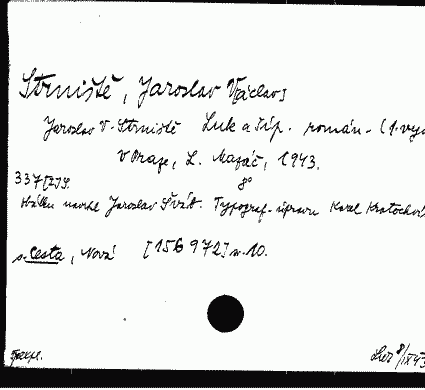 Strniště, Jaroslav V[áclav]
Jaroslav V. Strniště Luk a šíp. román. (1. vyd
V Praze, L. Mazáč, 1943.
337 [I] s. 8°
Obálku navrhl Jaroslav Šváb. Typograf. úprava Karel Kratochvíl
s. Cesta, Nová [156972] n. 10.
8/IX 43